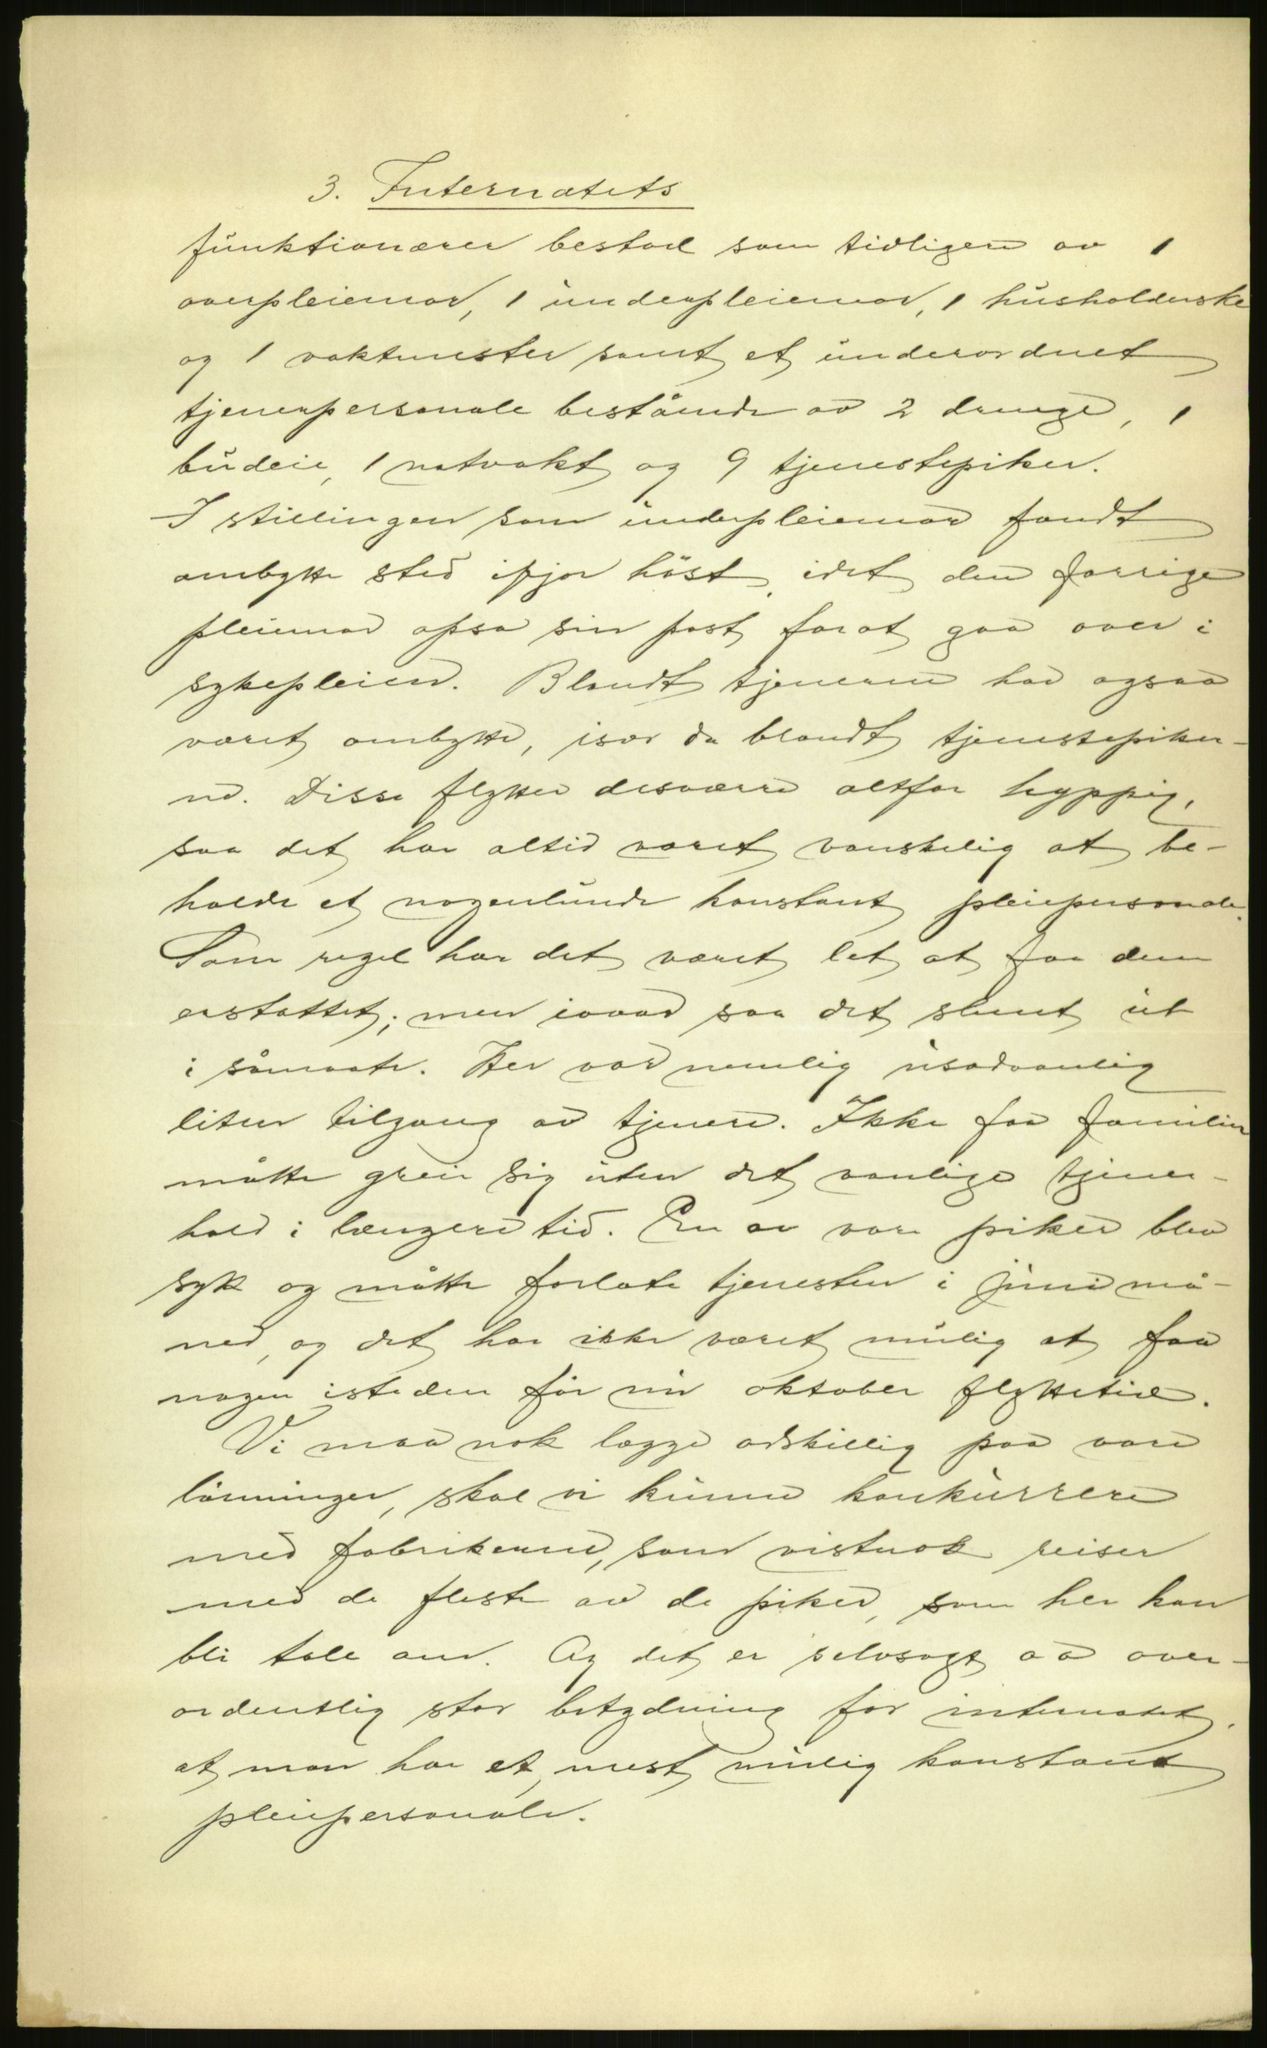 3. Internatets
funktionærer bestod som tidligere av 1
overpleiemor, 1 underpleiemor, 1 husholderske
og 1 vaktmester samt et underordnet
tjenerpersonale bestående av 2 drenge, 1
budeie, 1 natvakt og 9 tjenestepiker.
I stillingen som underpleiemor fandt
ombytte sted ifjor høst, idet den forrige
pleiemor opsa sin post forat gaa over i
sykepleien. Blandt tjenerne har ogsaa
været ombytte, især da blandt tjenestepiker-
ne. Disse flytter desværre altfor hyppig,
saa det har altid været vanskelig at be-
holde et nogenlunde konstant pleiepersonale.
Som regel har det været let at faa dem
erstattet; men iaar saa det slemt ut
i såmaate. Her var nemlig usedvanlig
liten tilgang av tjenere. Ikke faa familier
måtte greie sig uten det vanlige tjener-
hold i længere tid. En av vore piker blev
syk og måtte forlate tjenesten i juni må-
ned, og det har ikke været mulig at faa
nogen isteden før nu oktober flyttetid.
Vi maa nok lægge adskillig paa vore
lønninger, skal vi kunne konkurrere
med fabrikerne, som vistnok reiser
med de fleste av de piker, som her kan
bli tale om. Og det er selvsagt av over-
ordentlig stor betydning for internatet,
at man har et mest mulig konstant
pleiepersonale.